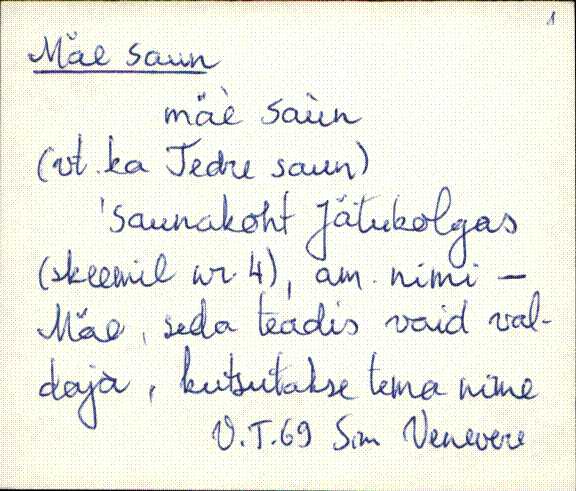 1
Mäe saun
mäè saùn
(vt. ka Tedre saun)
'Saunakoht Jätukolgas
(skeemil nr. 4), am. nimi –
Mäe, seda teadis vaid val-
daja, kutsutakse tema nime
V.T.69 Sim Venevere